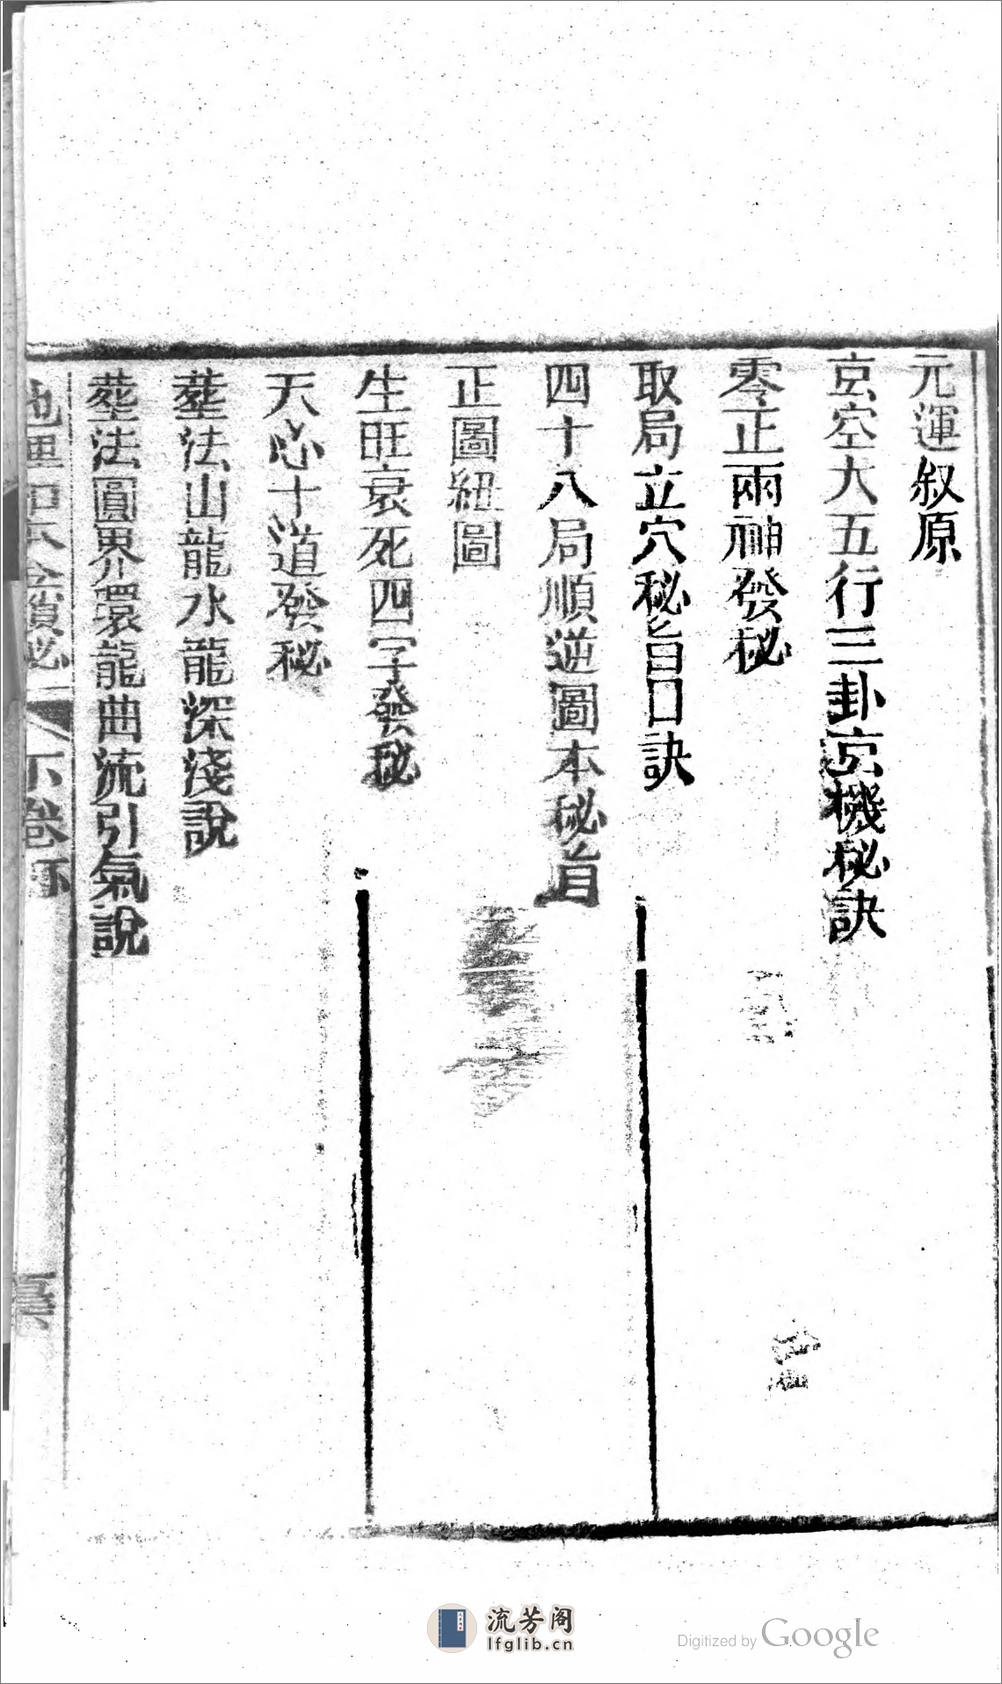 元運敘原
玄空大五行三卦玄機秘訣
零正兩神發秘
取局立穴秘旨口訣
四十八局順逆圖本秘旨
正圖紐圖
生旺衰死四字發秘
天心十道發秘
塟法山龍水龍深淺說
塟法圓界環龍曲流引氣說
地理
秘
下卷
流芳阁
lfglib.cn
Digitized by Google